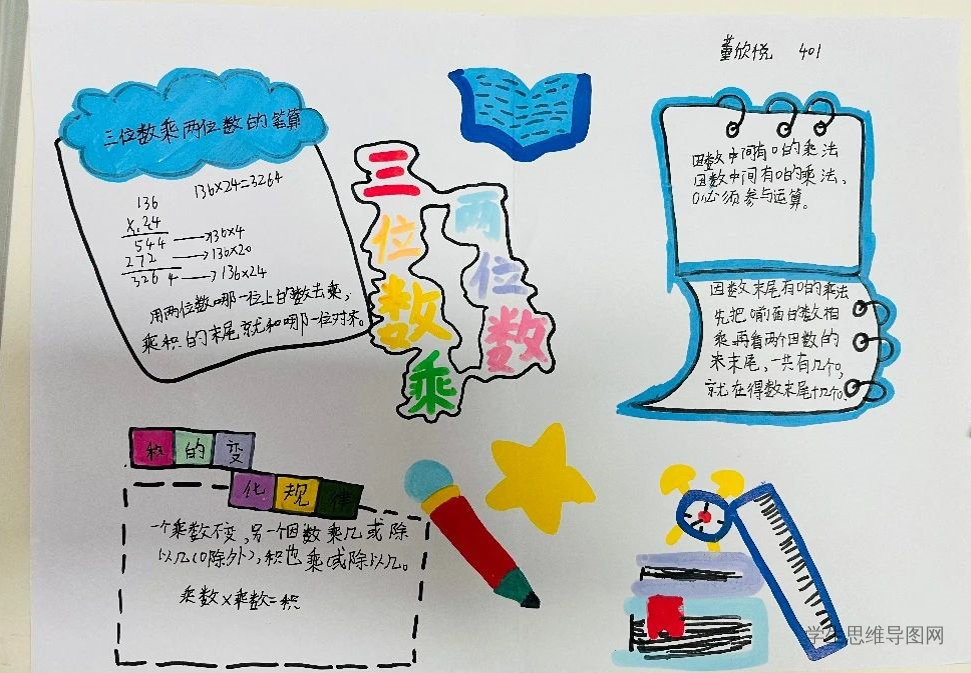 董欣悦 401
三位数乘两位数的笔算
136×24=3264
136
×.24
544 → 136×4
272 → 136×20
3264 → 136×24
用两位数哪一位上的数去乘,
乘积的末尾就和哪一位对齐。
三位数乘
两位数
因数中间有0的乘法
因数中间有0的乘法、
0必须参与运算。
因数末尾有0的乘法
先把0前面的数相
乘.再看两个因数的
末尾,一共有几个,
就在得数末尾十几个0.
积的变
化规律
一个乘数不变,另一个因数乘几或除
以几(0除外),积也乘(或除以几。
乘数×乘数=积
学生思维导图网